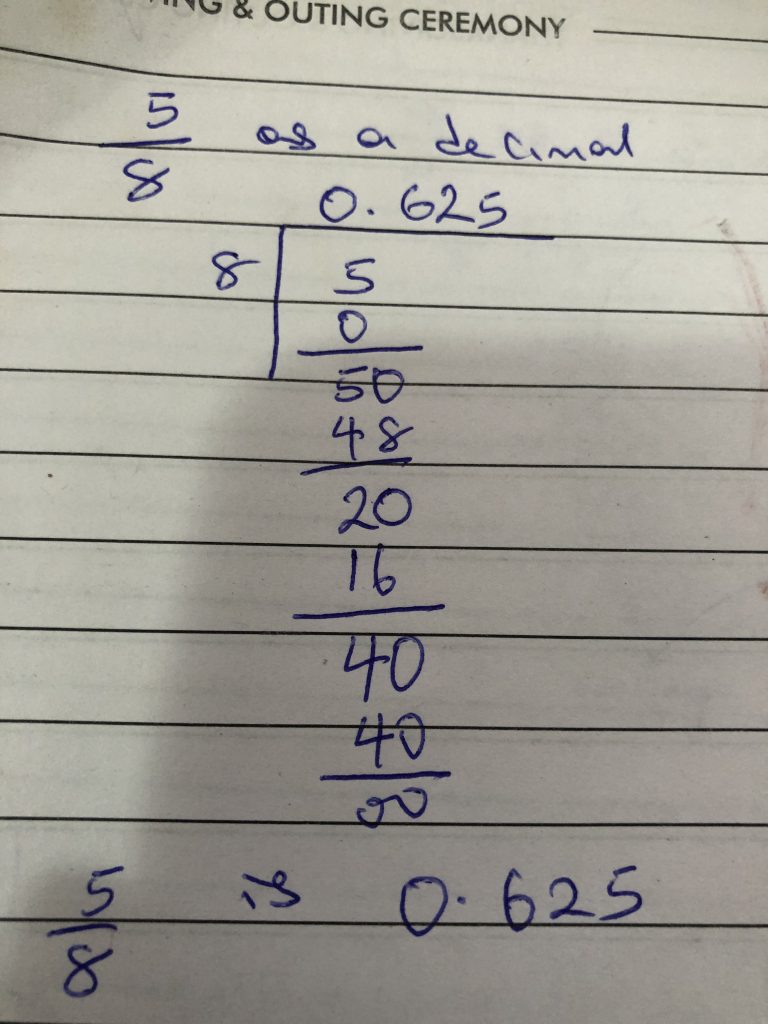 & OUTING CEREMONY
5/8 as a decimal
0.625
8 5
0
50
48
20
16
40
40
00
5/8 is 0.625